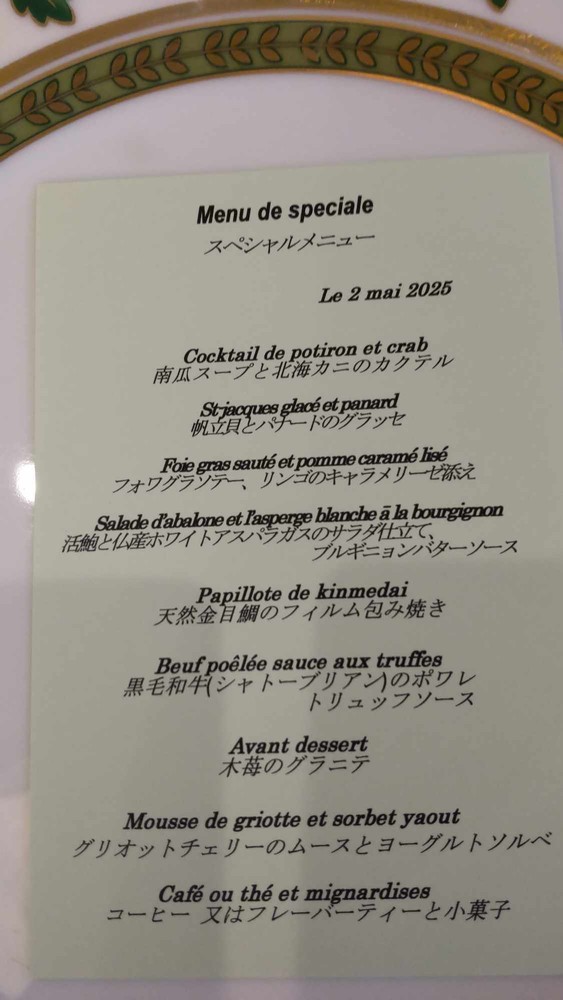 Menu de speciale
スペシャルメニュー
Le 2 mai 2025
Cocktail de potiron et crab
南瓜スープと北海カニのカクテル
St-jacques glacé et panard
帆立貝とパナードのグラッセ
Foie gras sauté et pomme caramé lisé
フォワグラソテー、リンゴのキャラメリーゼ添え
Salade d'abalone et l'asperge blanche ā la bourgignon
活鮑と仏産ホワイトアスパラガスのサラダ仕立て、
ブルギニョンバターソース
Papillote de kinmedai
天然金目鯛のフィルム包み焼き
Beuf poêlée sauce aux truffes
黒毛和牛(シャトーブリアン)のポワレ
トリュッフソース
Avant dessert
木苺のグラニテ
Mousse de griotte et sorbet yaout
グリオットチェリーのムースとヨーグルトソルベ
Café ou thé et mignardises
コーヒー 又はフレーバーティーと小菓子